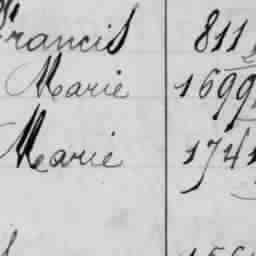 Francis 811
Marie 1699
Marie 1741